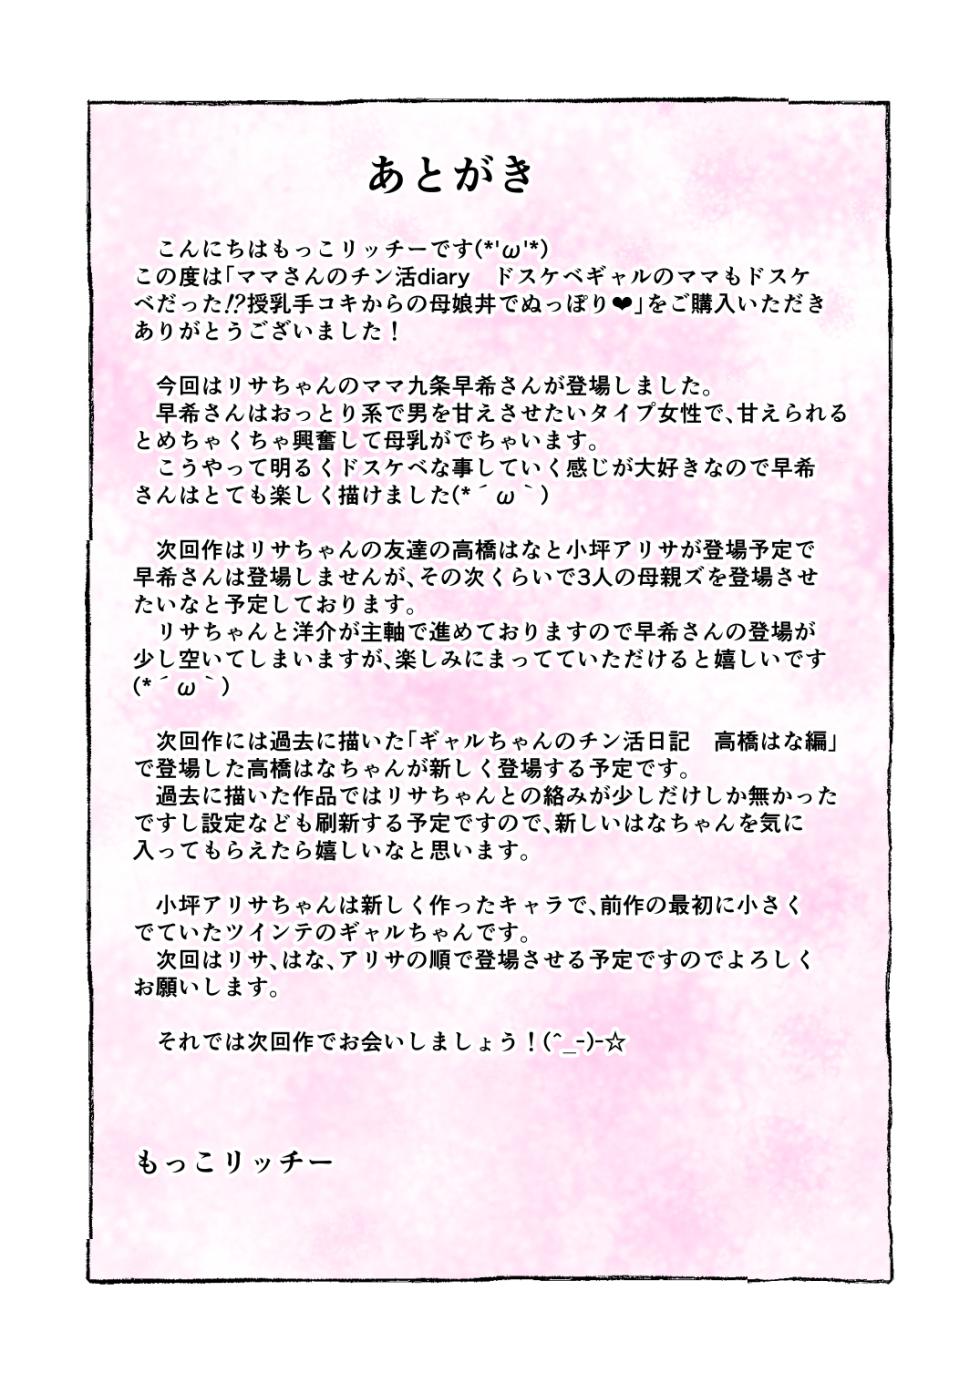 あとがき
こんにちはもっこリッチーです(*'ω'*)
この度は｢ママさんのチン活diary　ドスケベギャルのママもドスケ
ベだった!?授乳手コキからの母娘丼でぬっぽり❤｣をご購入いただき
ありがとうございました！
今回はリサちゃんのママ九条早希さんが登場しました。
早希さんはおっとり系で男を甘えさせたいタイプ女性で､甘えられる
とめちゃくちゃ興奮して母乳がでちゃいます。
こうやって明るくドスケベな事していく感じが大好きなので早希
さんはとても楽しく描けました(*´ω｀)
次回作はリサちゃんの友達の高橋はなと小坪アリサが登場予定で
早希さんは登場しませんが､その次くらいで3人の母親ズを登場させ
たいなと予定しております。
リサちゃんと洋介が主軸で進めておりますので早希さんの登場が
少し空いてしまいますが､楽しみにまってていただけると嬉しいです
(*´ω｀)
次回作には過去に描いた｢ギャルちゃんのチン活日記　高橋はな編｣
で登場した高橋はなちゃんが新しく登場する予定です。
過去に描いた作品ではリサちゃんとの絡みが少しだけしか無かった
ですし設定なども刷新する予定ですので､新しいはなちゃんを気に
入ってもらえたら嬉しいなと思います。
小坪アリサちゃんは新しく作ったキャラで､前作の最初に小さく
でていたツインテのギャルちゃんです。
次回はリサ､はな､アリサの順で登場させる予定ですのでよろしく
お願いします。
それでは次回作でお会いしましょう！(^_-)-☆
もっこリッチー